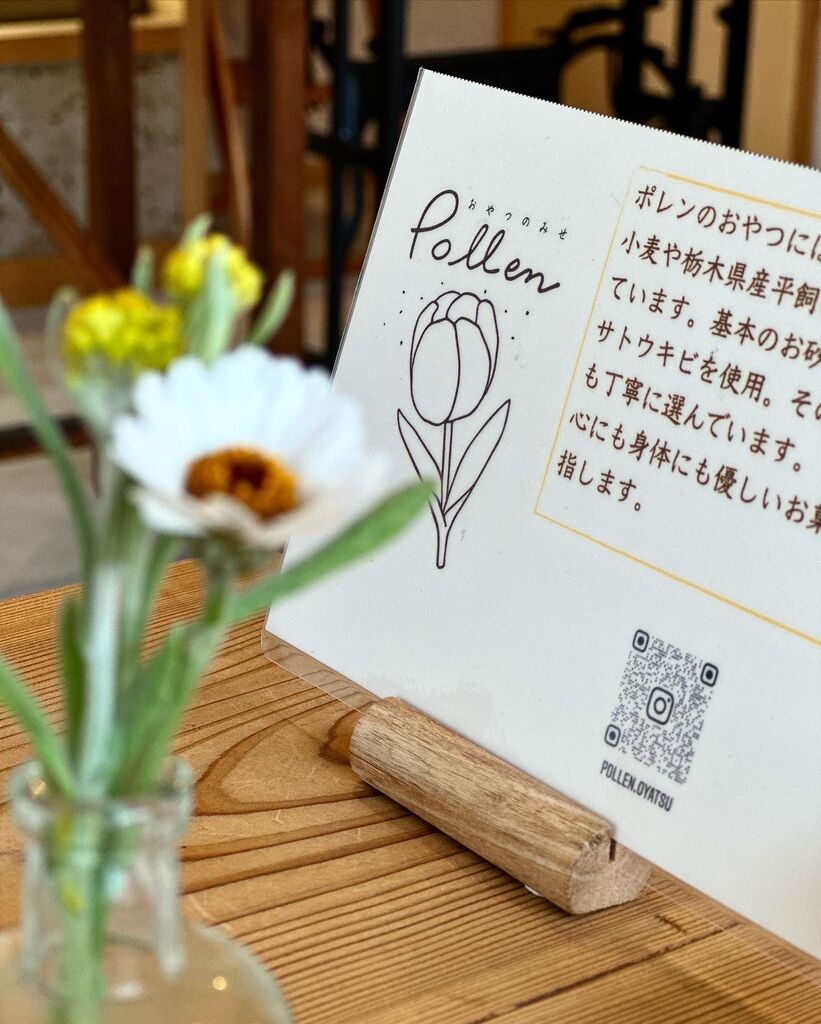 おやつのみせ
Pollen
ポレンのおやつには
小麦や栃木県産平飼
ています。基本のお砂
サトウキビを使用。その
も丁寧に選んでいます。
心にも身体にも優しいお菓
指します。
POLLEN.OYATSU